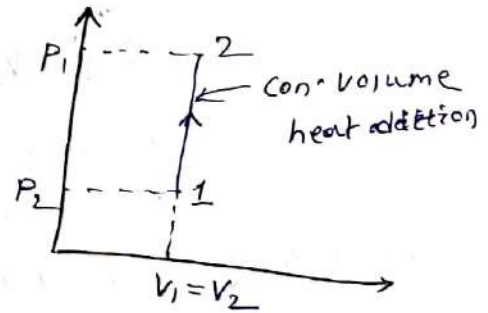 P₁
2
con-volume
heat addition
P₂
1
V₁ = V₂